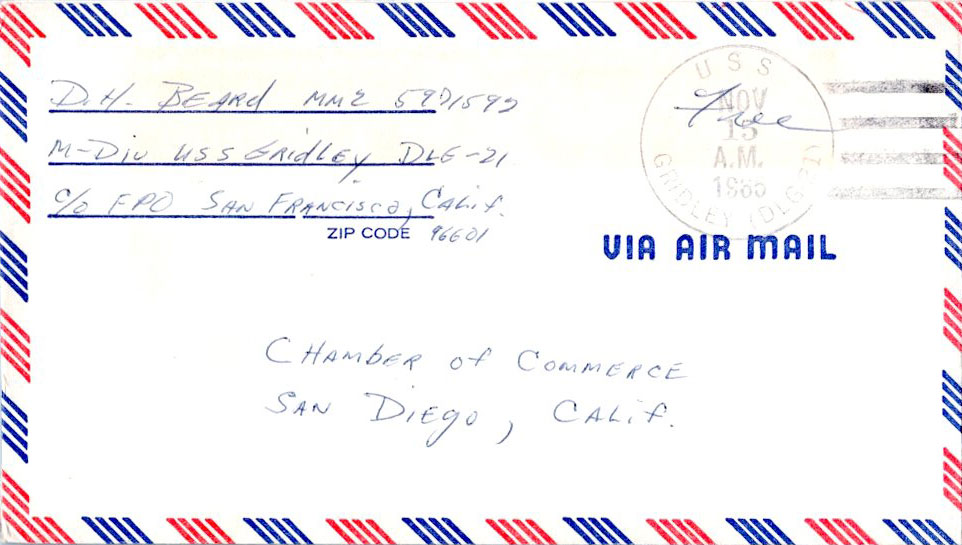 D.H. BEARD MM2 5971592
M-Div USS GRidLEY DLG-21
c/o FPO SAN FRANCISCO, CALif.
ZIP CODE 96601
USS
Free
NOV
15
A.M.
GRIDLEY (DLG-21)
VIA AIR MAIL
CHAMbER of COMMERCE
SAN DiEgo, CALif.